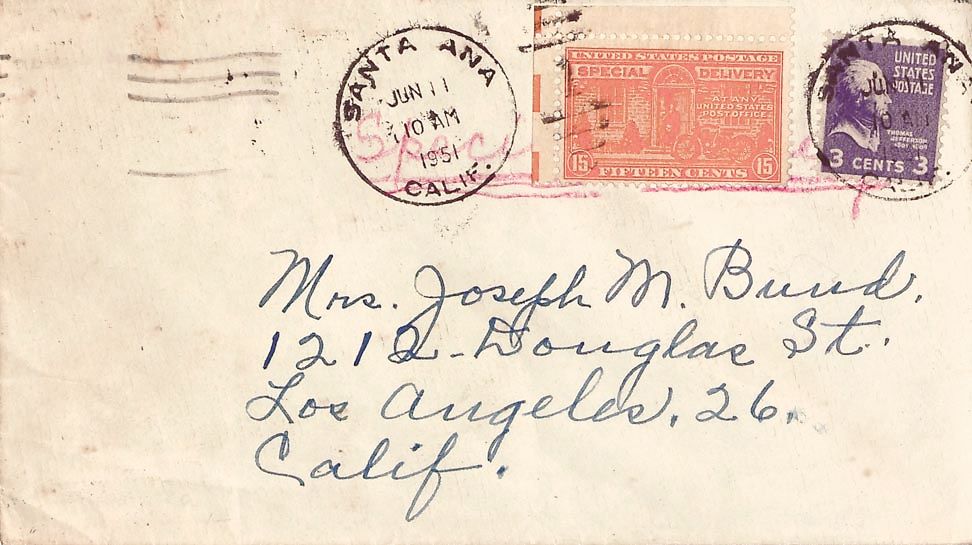 SANTA ANA
JUN 11
10 AM
1951
CALIF.
UNITED STATES POSTAGE
SPECIAL DELIVERY
AT ANY
UNITED STATES
POST OFFICE
15 15
FIFTEEN CENTS
UNITED
STATES
POSTAGE
THOMAS
JEFFERSON
3 CENTS 3
SANTA AN
JUN
10 AM
Mrs. Joseph M. Bund.
1212 - Douglas St.
Los Angeles. 26.
Calif.